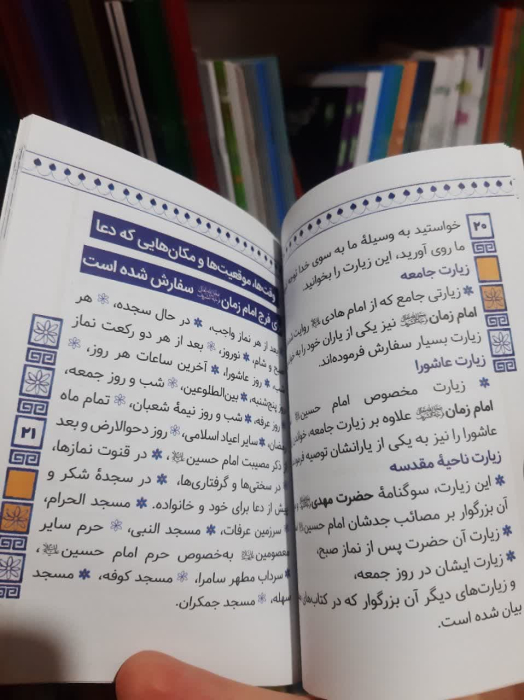 ۲۰
خواستید به وسیلهٔ ما به سوی خدا توجه
ما روی آورید، این زیارت را بخوانید.
زیارت جامعه
* زیارتی جامع که از امام هادی روایت
امام زمان نیز یکی از یاران خود را به
زیارت بسیار سفارش فرموده‌اند.
زیارت عاشورا
* زیارت مخصوص امام حسین
امام زمان علاوه بر زیارت جامعه،
عاشورا را نیز به یکی از یارانشان توصیه
زیارت ناحیهٔ مقدسه
* این زیارت، سوگنامهٔ حضرت مهدی
آن بزرگوار بر مصائب جدشان امام حسین
* زیارت آن حضرت پس از نماز صبح،
* زیارت ایشان در روز جمعه،
و زیارت‌های دیگر آن بزرگوار که در کتاب‌های
بیان شده است.
وقت‌ها، موقعیت‌ها و مکان‌هایی که دعا
فرج امام زمان سفارش شده است
از هر نماز واجب، * در حال سجده، * هر
و شام، * نوروز، * بعد از هر دو رکعت نماز
* روز عاشورا، * آخرین ساعات هر روز، *
پنج‌شنبه، * بین‌الطلوعین، * شب و روز جمعه،
روز عرفه، * شب و روز نیمهٔ شعبان، * تمام ماه
* سایر اعیاد اسلامی، * روز دحوالارض و بعد
ذکر مصیبت امام حسین، * در قنوت نمازها،
در سختی‌ها و گرفتاری‌ها، * در سجدهٔ شکر و
پیش از دعا برای خود و خانواده. * مسجد الحرام،
* سرزمین عرفات، * مسجد النبی، * حرم سایر
معصومین به‌خصوص حرم امام حسین،
* سرداب مطهر سامرا، * مسجد کوفه، * مسجد
سهله، * مسجد جمکران.
۲۱